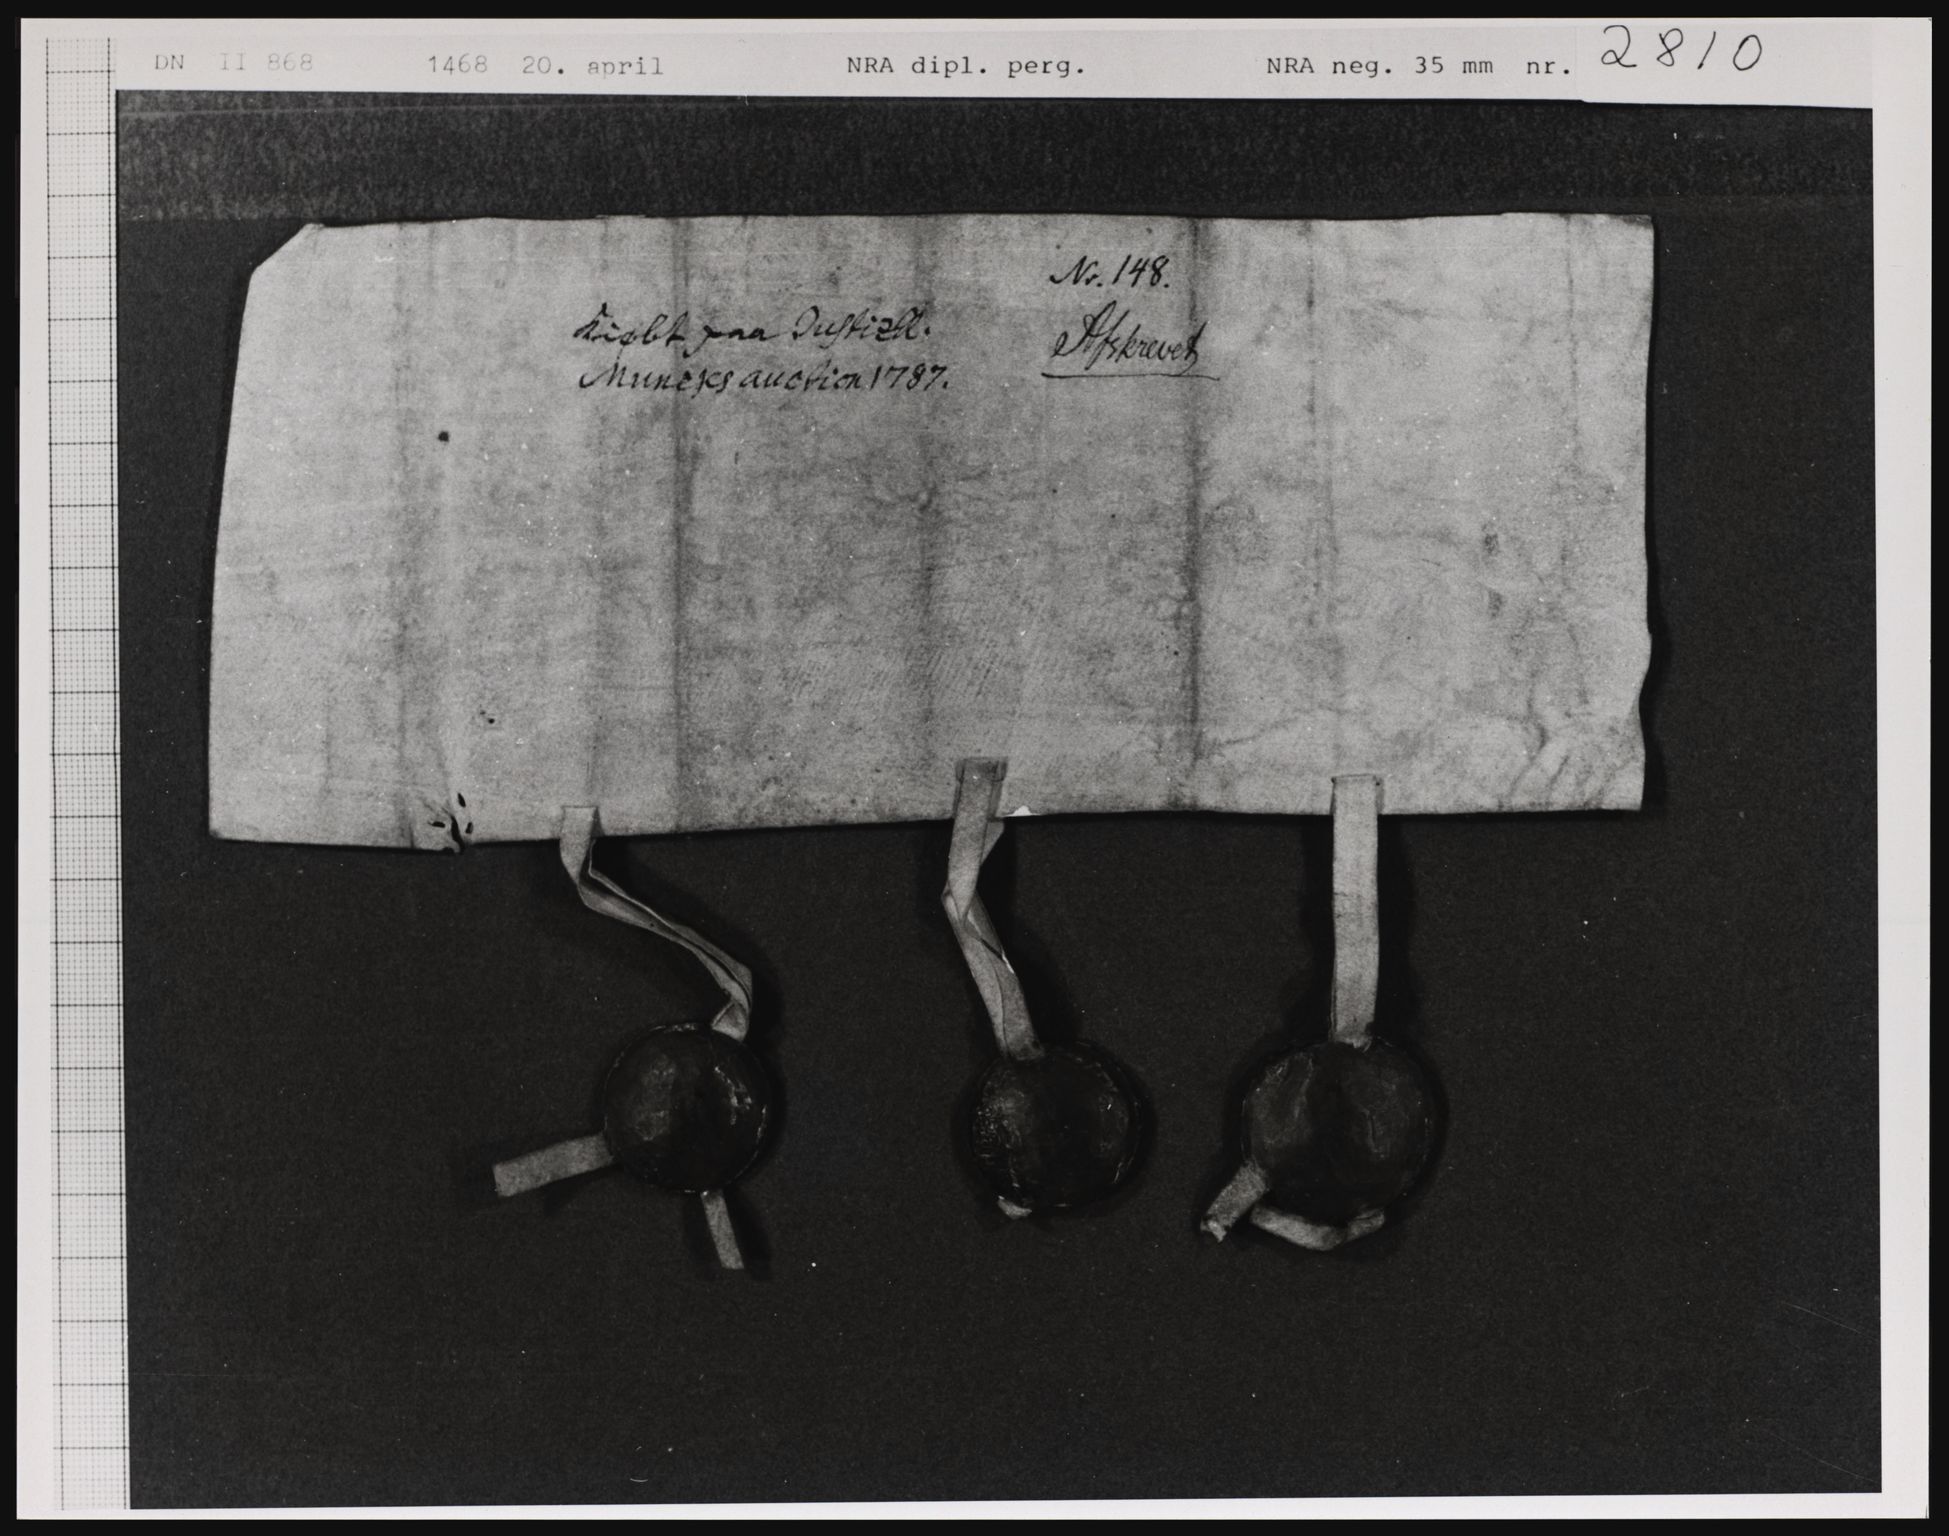 DN II 868 1468 20. april NRA dipl. perg. NRA neg. 35 mm nr. 2810
No. 148.
Kiøbt paa Justizr.
Afskrevet
Muncks auction 1787.